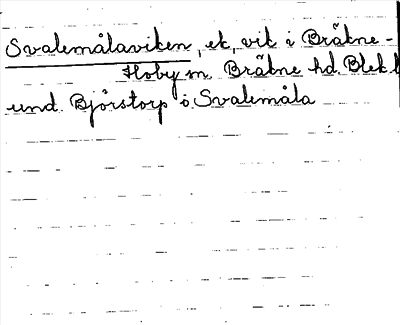 Svalemålaviken, ek, vik i Bräkne-
Hoby sn. Bräkne hd. Blek. l
und. Björstorp o. Svalemåla